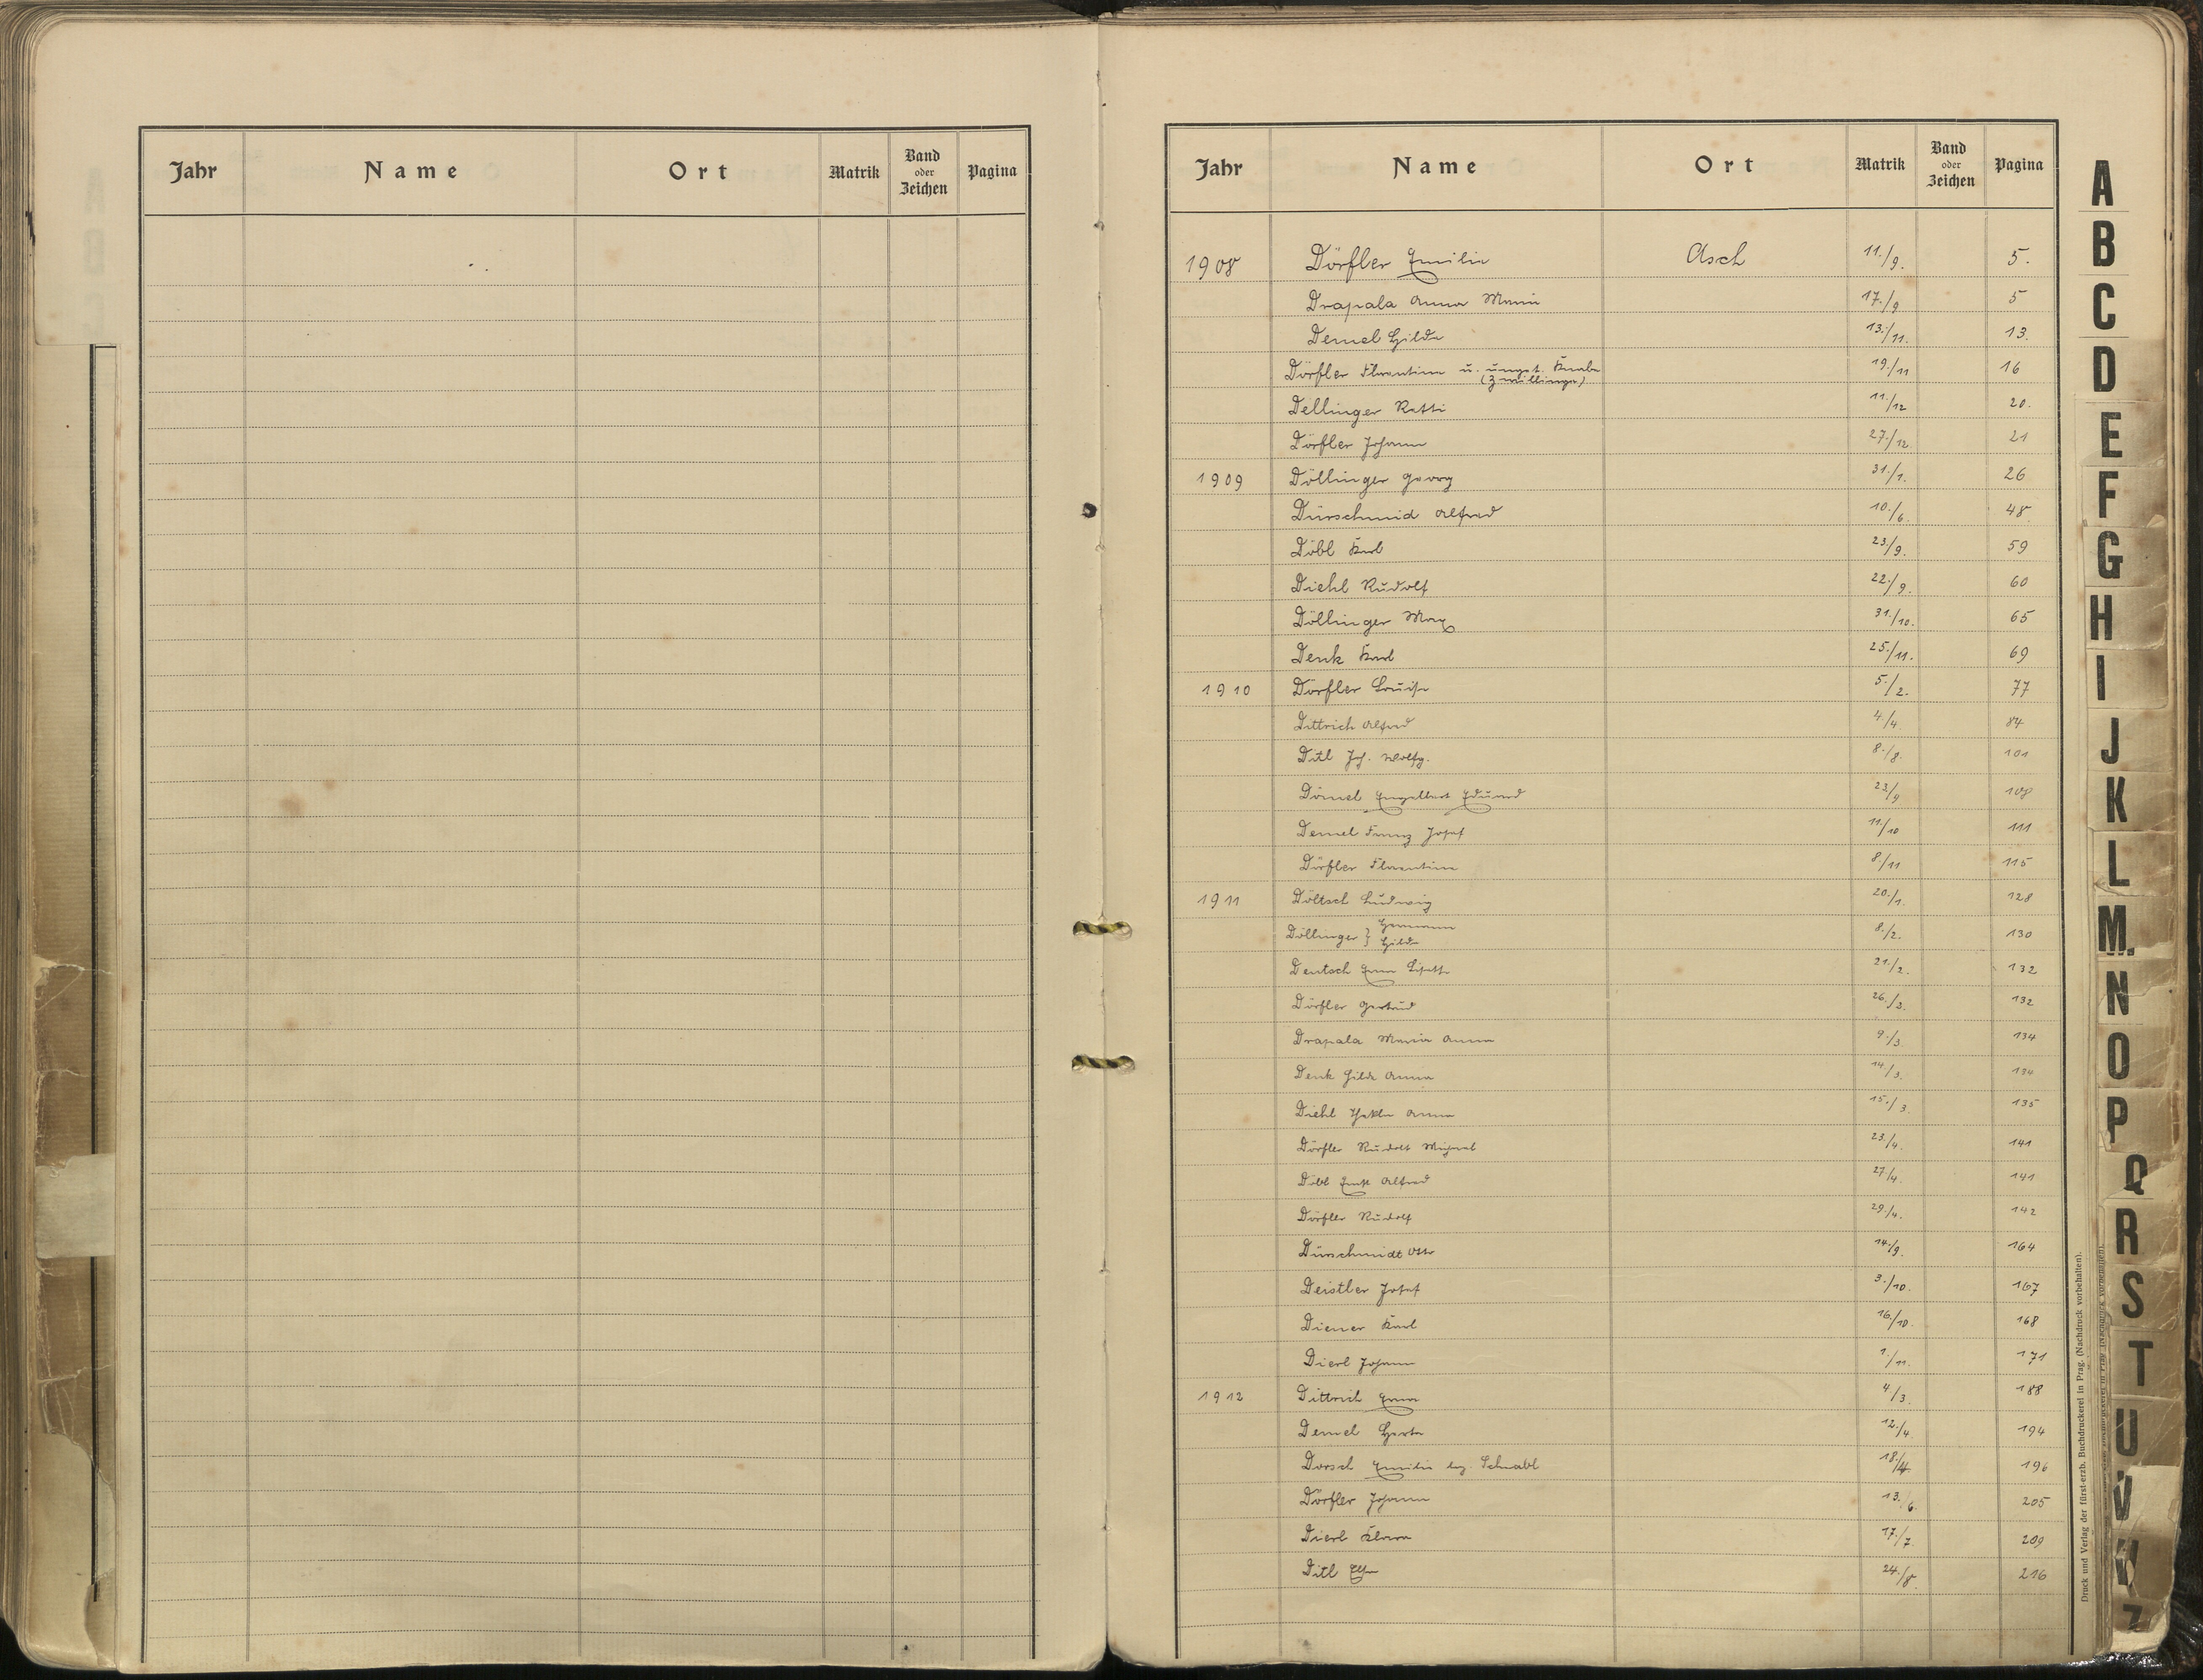 Jahr Name Ort Matrik Band oder Zeichen Pagina
Jahr Name Ort Matrik Band oder Zeichen Pagina
1908 Dörfler Emilie Asch 11./9. 5.
Drapala Anna Maria 17./9 5
Demel Hilda 13./11. 13.
Dörfler Florentine u. ungt. Knabe 19./11 16
(Zwillinge)
Dellinger Katti 11./12 20.
Dörfler Johann 27./12. 21
1909 Döllinger Georg 31./1. 26
Dürschmid Alfred 10./6. 48
Döbl Karl 23./9. 59
Diehl Rudolf 22./9. 60
Döllinger Max 31./10. 65
Denk Karl 25./11. 69
1910 Dörfler Louise 5./2. 77
Dittrich Alfred 4./4. 84
Ditl Joh. Wolfg. 8./8. 101
Dömel Engelbert Eduard 23/9 108
Demel Franz Josef 11./10 111
Dörfler Florentine 8./11 115
1911 Döltsch Ludwig 20./1. 128
Döllinger } Hermann
Hilda 8./2. 130
Deutsch Erna Lisette 21./2. 132
Dörfler Gertrud 26./2. 132
Drapala Maria Anna 9./3. 134
Denk Hilda Anna 14./3. 134
Diehl Thekla Anna 15./3. 135
Dörfler Rudolf Michael 23./4. 141
Döbl Ernst Alfred 27/4. 141
Dörfler Rudolf 29./4. 142
Dürschmidt Otto 14./9. 164
Deistler Josef 3./10. 167
Diener Karl 16./10. 168
Dierl Johann 1./11. 171
1912 Dittrich Erna 4/3. 188
Demel Herta 12./4. 194
Dorsch Emilie leg. Schnabl 18./4. 196
Dörfler Johann 13./6. 205
Dierl Klara 17./7. 209
Ditl Else 24./8. 216
A
B
C
D
E
F
G
H
I
J
K
L
M.
N
O
P
Q
R
S
T
U
V
Z
Druck und Verlag der fürst-erzb. Buchdruckerei in Prag. (Nachdruck vorbehalten).